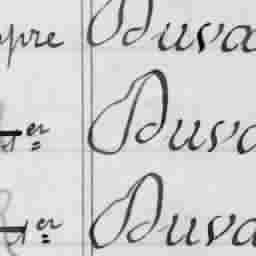 pre Duva
er Duva
er Duva